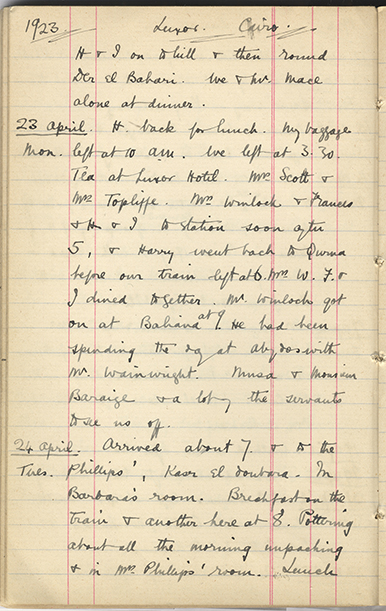 1923. Luxor. Cairo.
H & I on to hill & then round
Der El Bahari. We & Mr. Mace
alone at dinner.
23 April. H. back for lunch. My baggage
Mon. left at 10 a.m. We left at 3.30.
Tea at Luxor Hotel. Mrs Scott &
Mrs Topliffe. Mrs Winlock & Frances
& H & I to station soon after
5, & Harry went back to Qurna
before our train left at 6. Mrs W. F. &
I dined together. Mr. Winlock got
on at Baliana at 9. He had been
spending the day at Abydos with
Mr. Wainwright. Musa & Monsieur
Baraize & a lot of the servants
to see us off.
24 April. Arrived about 7. & to the
Tues. Phillips', Kasr El doubara. In
Barbara's room. Breakfast on the
train & another here at 8. Pottering
about all the morning unpacking
& in Mrs Phillips' room. Lunch